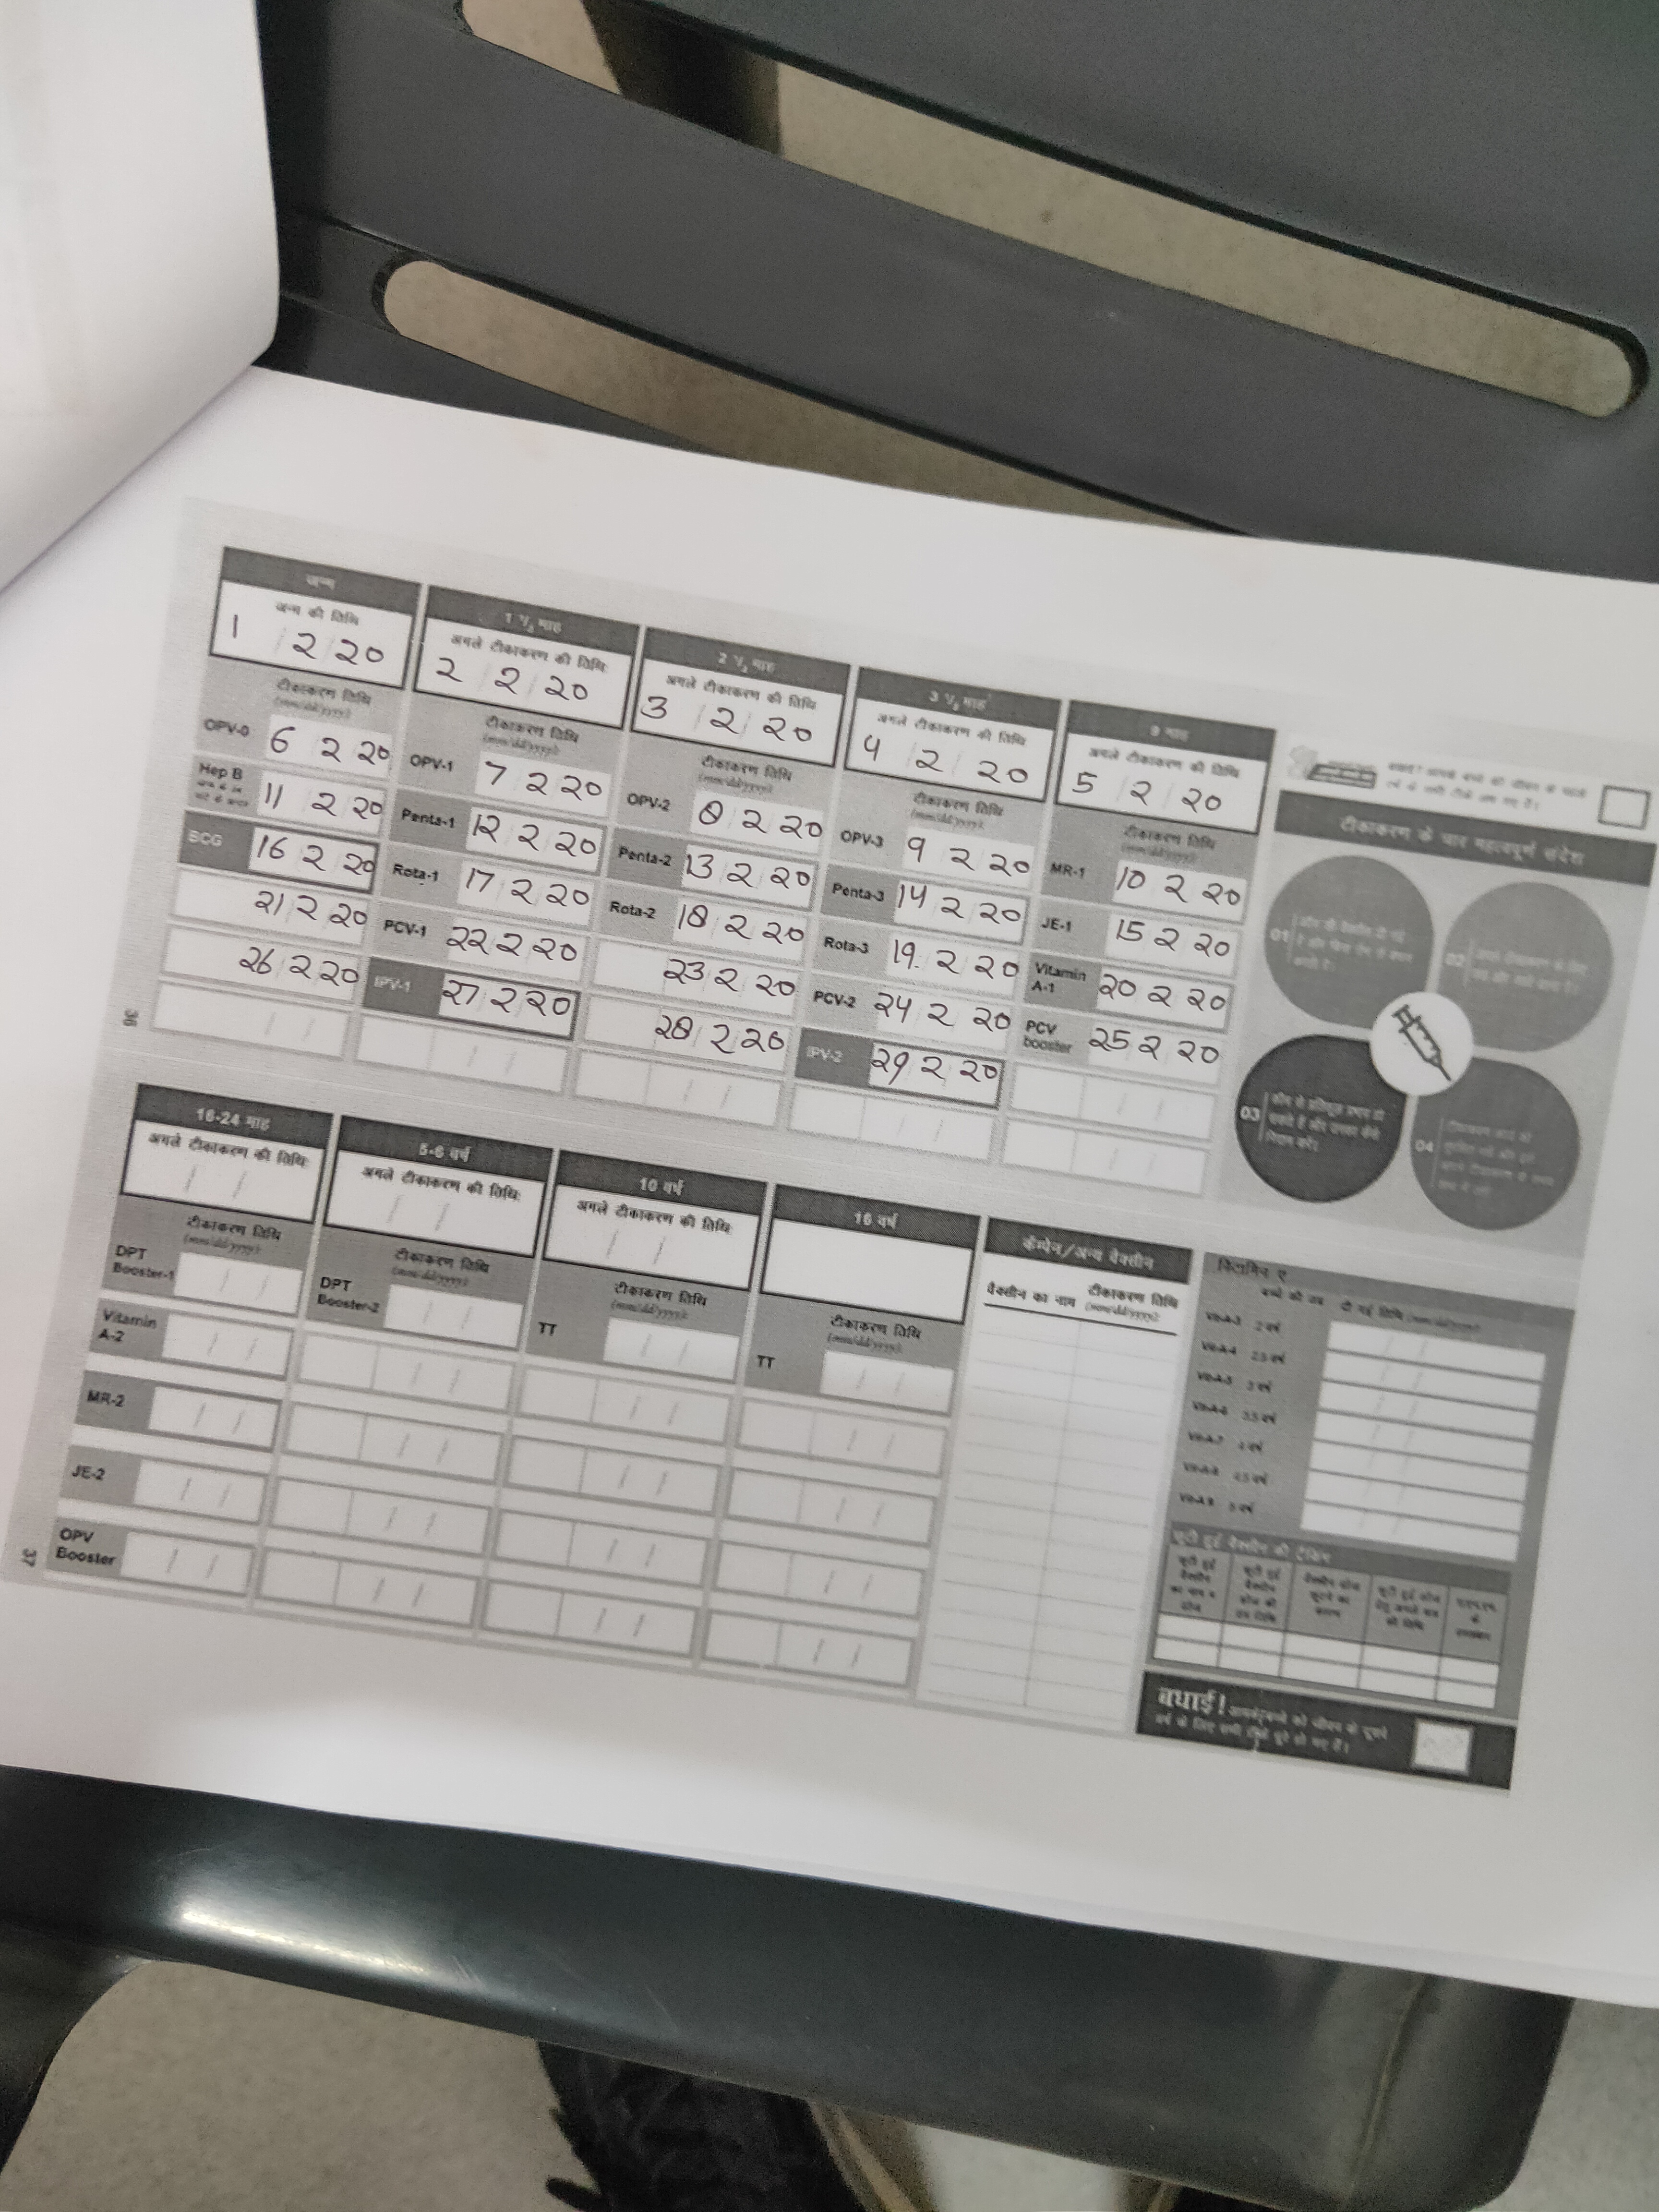 जन्म
जन्म की तिथि
1 / 2 20
टीकाकरण तिथि
(mm/dd/yyyy)
OPV-0 6 2 20
Hep B 11 2 20
BCG 16 2 20
21 2 20
26 2 20
1 ½ माह
अगले टीकाकरण की तिथि:
2 / 2 / 20
टीकाकरण तिथि
(mm/dd/yyyy)
OPV-1 7 2 20
Penta-1 12 2 20
Rota-1 17 2 20
PCV-1 22 2 20
IPV-1 27 2 20
2 ½ माह
अगले टीकाकरण की तिथि
3 / 2 / 20
टीकाकरण तिथि
(mm/dd/yyyy)
OPV-2 8 2 20
Penta-2 13 2 20
Rota-2 18 2 20
23 2 20
28 2 20
3 ½ माह
अगले टीकाकरण की तिथि
4 / 2 / 20
टीकाकरण तिथि
(mm/dd/yyyy)
OPV-3 9 2 20
Penta-3 14 2 20
Rota-3 19 2 20
PCV-2 24 2 20
IPV-2 29 2 20
9 माह
अगले टीकाकरण की तिथि
5 / 2 / 20
टीकाकरण तिथि
(mm/dd/yyyy)
MR-1 10 2 20
JE-1 15 2 20
Vitamin A-1 20 2 20
PCV booster 25 2 20
टीकाकरण के चार महत्वपूर्ण संदेश
01
02
03
04
36
16-24 माह
अगले टीकाकरण की तिथि:
टीकाकरण तिथि
(mm/dd/yyyy)
DPT Booster-1
Vitamin A-2
MR-2
JE-2
OPV Booster
5-6 वर्ष
अगले टीकाकरण की तिथि:
टीकाकरण तिथि
(mm/dd/yyyy)
DPT Booster-2
10 वर्ष
अगले टीकाकरण की तिथि:
टीकाकरण तिथि
(mm/dd/yyyy)
TT
16 वर्ष
टीकाकरण तिथि
(mm/dd/yyyy)
TT
कैम्पेन/अन्य वैक्सीन
वैक्सीन का नाम टीकाकरण तिथि
(mm/dd/yyyy)
विटामिन ए
Vit-A-3 2 वर्ष
Vit-A-4 2.5 वर्ष
Vit-A-5 3 वर्ष
Vit-A-6 3.5 वर्ष
Vit-A-7 4 वर्ष
Vit-A-8 4.5 वर्ष
Vit-A-9 5 वर्ष
छूटी हुई वैक्सीन की ट्रैकिंग
बधाई!
37